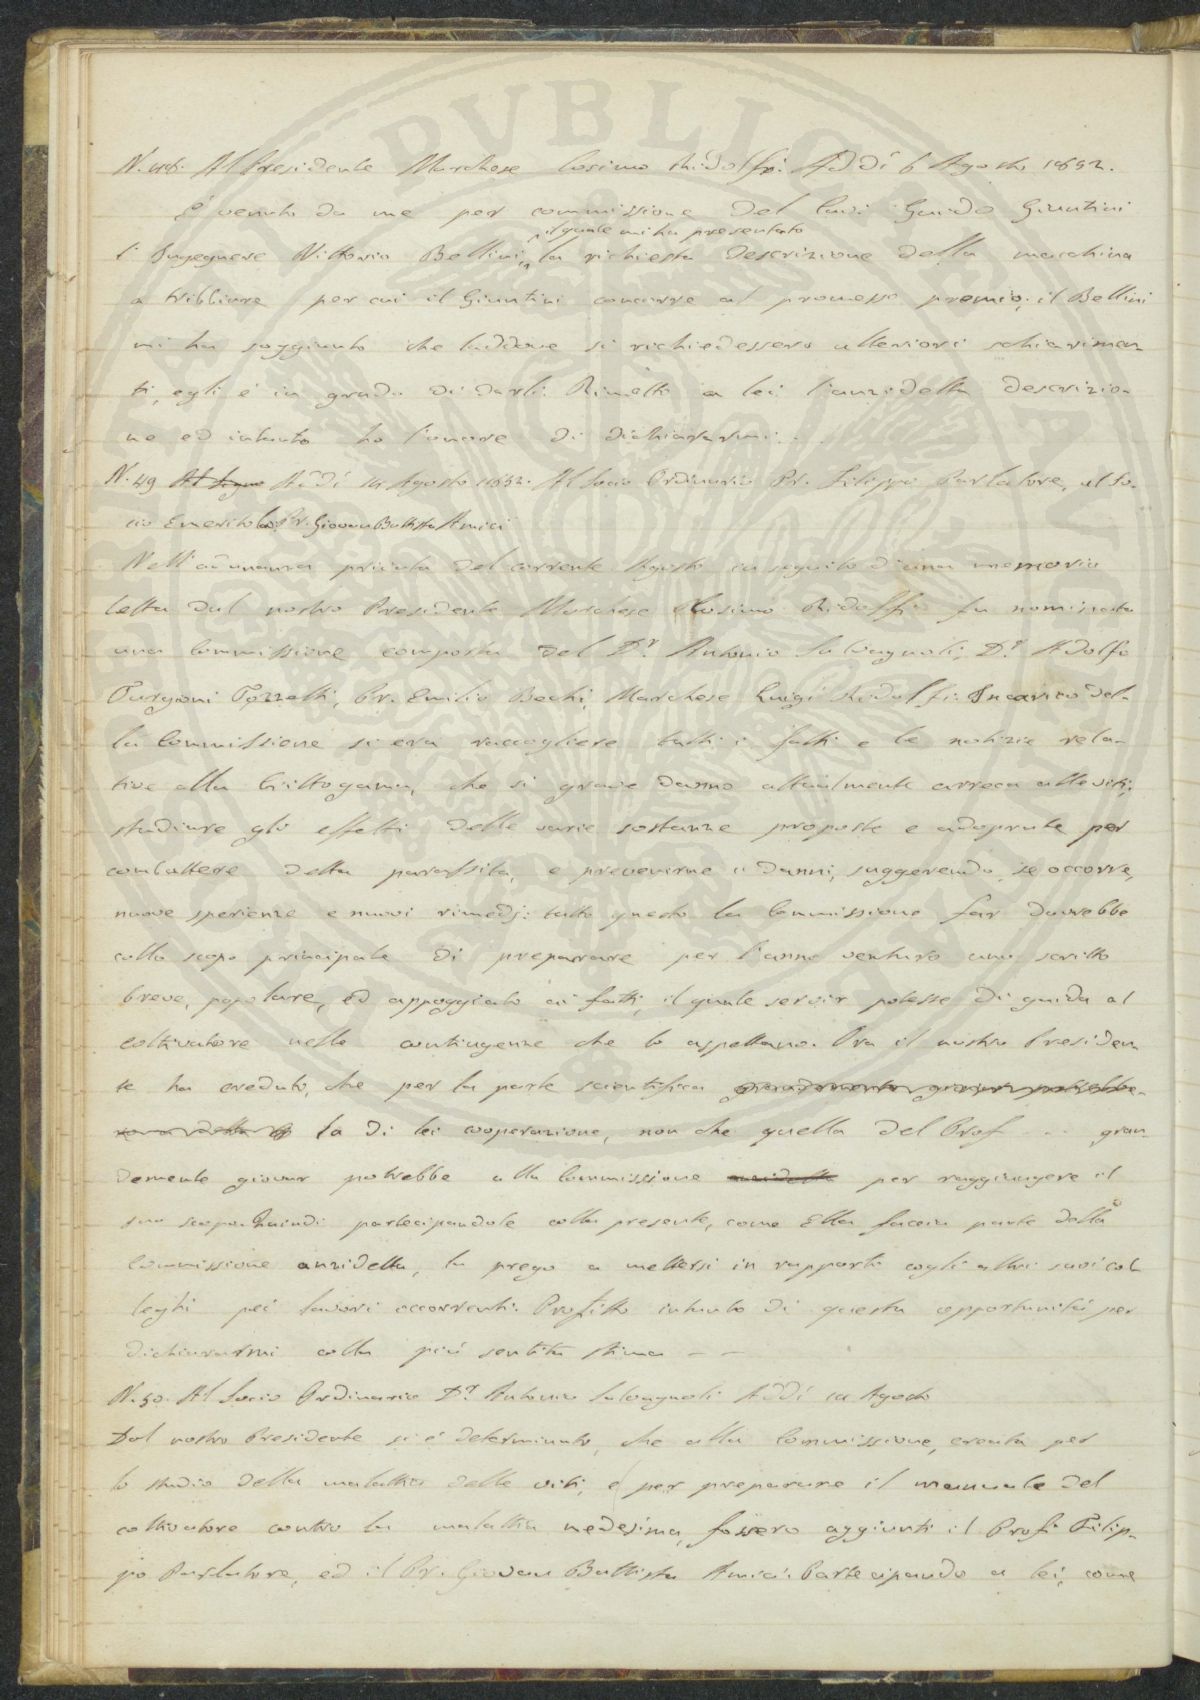 N. 48. Al Presidente Marchese Cosimo Ridolfi. Addì 6 Agosto 1852.
È venuto da me per commissione del Cavi Guido Giuntini
il quale mi ha presentato
l'Ingegnere Vittorio Bellini, la richiesta descrizione della macchina
a tribbiare per cui il Giuntini concorre al promesso premio; il Bellini
mi ha soggiunto che laddove si richiedessero ulteriori schiarimen-
ti, egli è in grado di darli. Rimetto a lei l'anzidetta descrizio-
ne ed intanto ho l'onore di dichiararmi...
N. 49 Al Segre Addì 14 Agosto 1852. Al Socio Ordinario Pr. Filippo Parlatore, al So-
cio Emerito Pr. Giovan Battista Amici
Nell'adunanza privata del corrente Agosto in seguito d'una memoria
letta dal nostro Presidente Marchese Cosimo Ridolfi fu nominata
una Commissione composta del Dr. Antonio Salvagnoli, Dr. Adolfo
Targioni Tozzetti, Pr. Emilio Bechi, Marchese Luigi Ridolfi. Incarico del-
la Commissione si era raccogliere tutti i fatti e le notizie rela-
tive alla Crittogama, che sì grave danno attualmente arreca alle viti;
studiare gli effetti delle varie sostanze proposte e adoprate per
combattere detta parassita, e prevenirne i danni, suggerendo, se occorre,
nuove sperienze e nuovi rimedj: tutto questo la Commissione far dovrebbe
collo scopo principale di preparare per l'anno venturo uno scritto
breve, popolare, ed appoggiato ai fatti, il quale servir potesse di guida al
coltivatore nelle contingenze che lo aspettano. Ora il nostro Presiden
te ha creduto, che per la parte scientifica grandemente giovar potrebbe
la di lei cooperazione, non che quella del Prof ... gran-
demente giovar potrebbe alla Commissione anzidetta per raggiungere il
suo scopo. Quindi partecipandole colla presente, come Ella faccia parte della
Commissione anzidetta, la prego a mettersi in rapporto cogli altri suoi col
leghi pei lavori occorrenti. Profitto intanto di questa opportunità per
dichiararmi colla più sentita stima - -
N. 50. Al Socio Ordinario Dr. Antonio Salvagnoli Addì 14 Agosto
Dal nostro Presidente si è determinato, che alla Commissione, creata per
lo studio della malattia delle viti, e per preparare il manuale del
coltivatore contro la malattia medesima, fossero aggiunti il Prof. Filip-
po Parlatore, ed il Pr. Giovan Battista Amici. Partecipando a lei, come